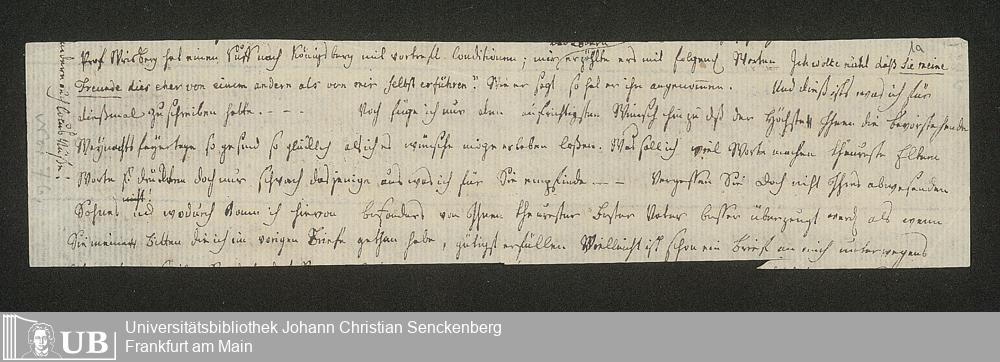 Prof Weisberg hat einen Ruff nach Königsberg mit vortrefl. Conditionen; mir erzählte ers mit folgend Worten Ich wolte nicht daß Sie meine
Freunde dies eher von einem andern als von mir selbst erführen." Wie er sagt so hat er ihn angenommen. Und dieß ists was ich für
dießmal zu schreiben hatte. — — Noch füge ich nur den aufrichtigsten Wunsch hinzu daß der Höchste Ihnen die bevorstehenden
Weynachts feyertage so gesund so glücklich als ich es wünsche möge erleben lassen. Was soll ich viel Worte machen theureste Eltern
Worte drucken doch nur schwach dasjenige aus was ich für Sie empfinde — — Vergessen Sie doch nicht Ihres abwesenden
Sohnes und wodurch kann ich hievon besonders von Ihnen theurester Bester Vater besser überzeugt werd als wenn
Sie meine Bitten die ich im vorigen Briefe gethan habe, gütigst erfüllen Vielleicht ist schon ein Brief an mich unterwegens
Universitätsbibliothek Johann Christian Senckenberg
Frankfurt am Main
UB